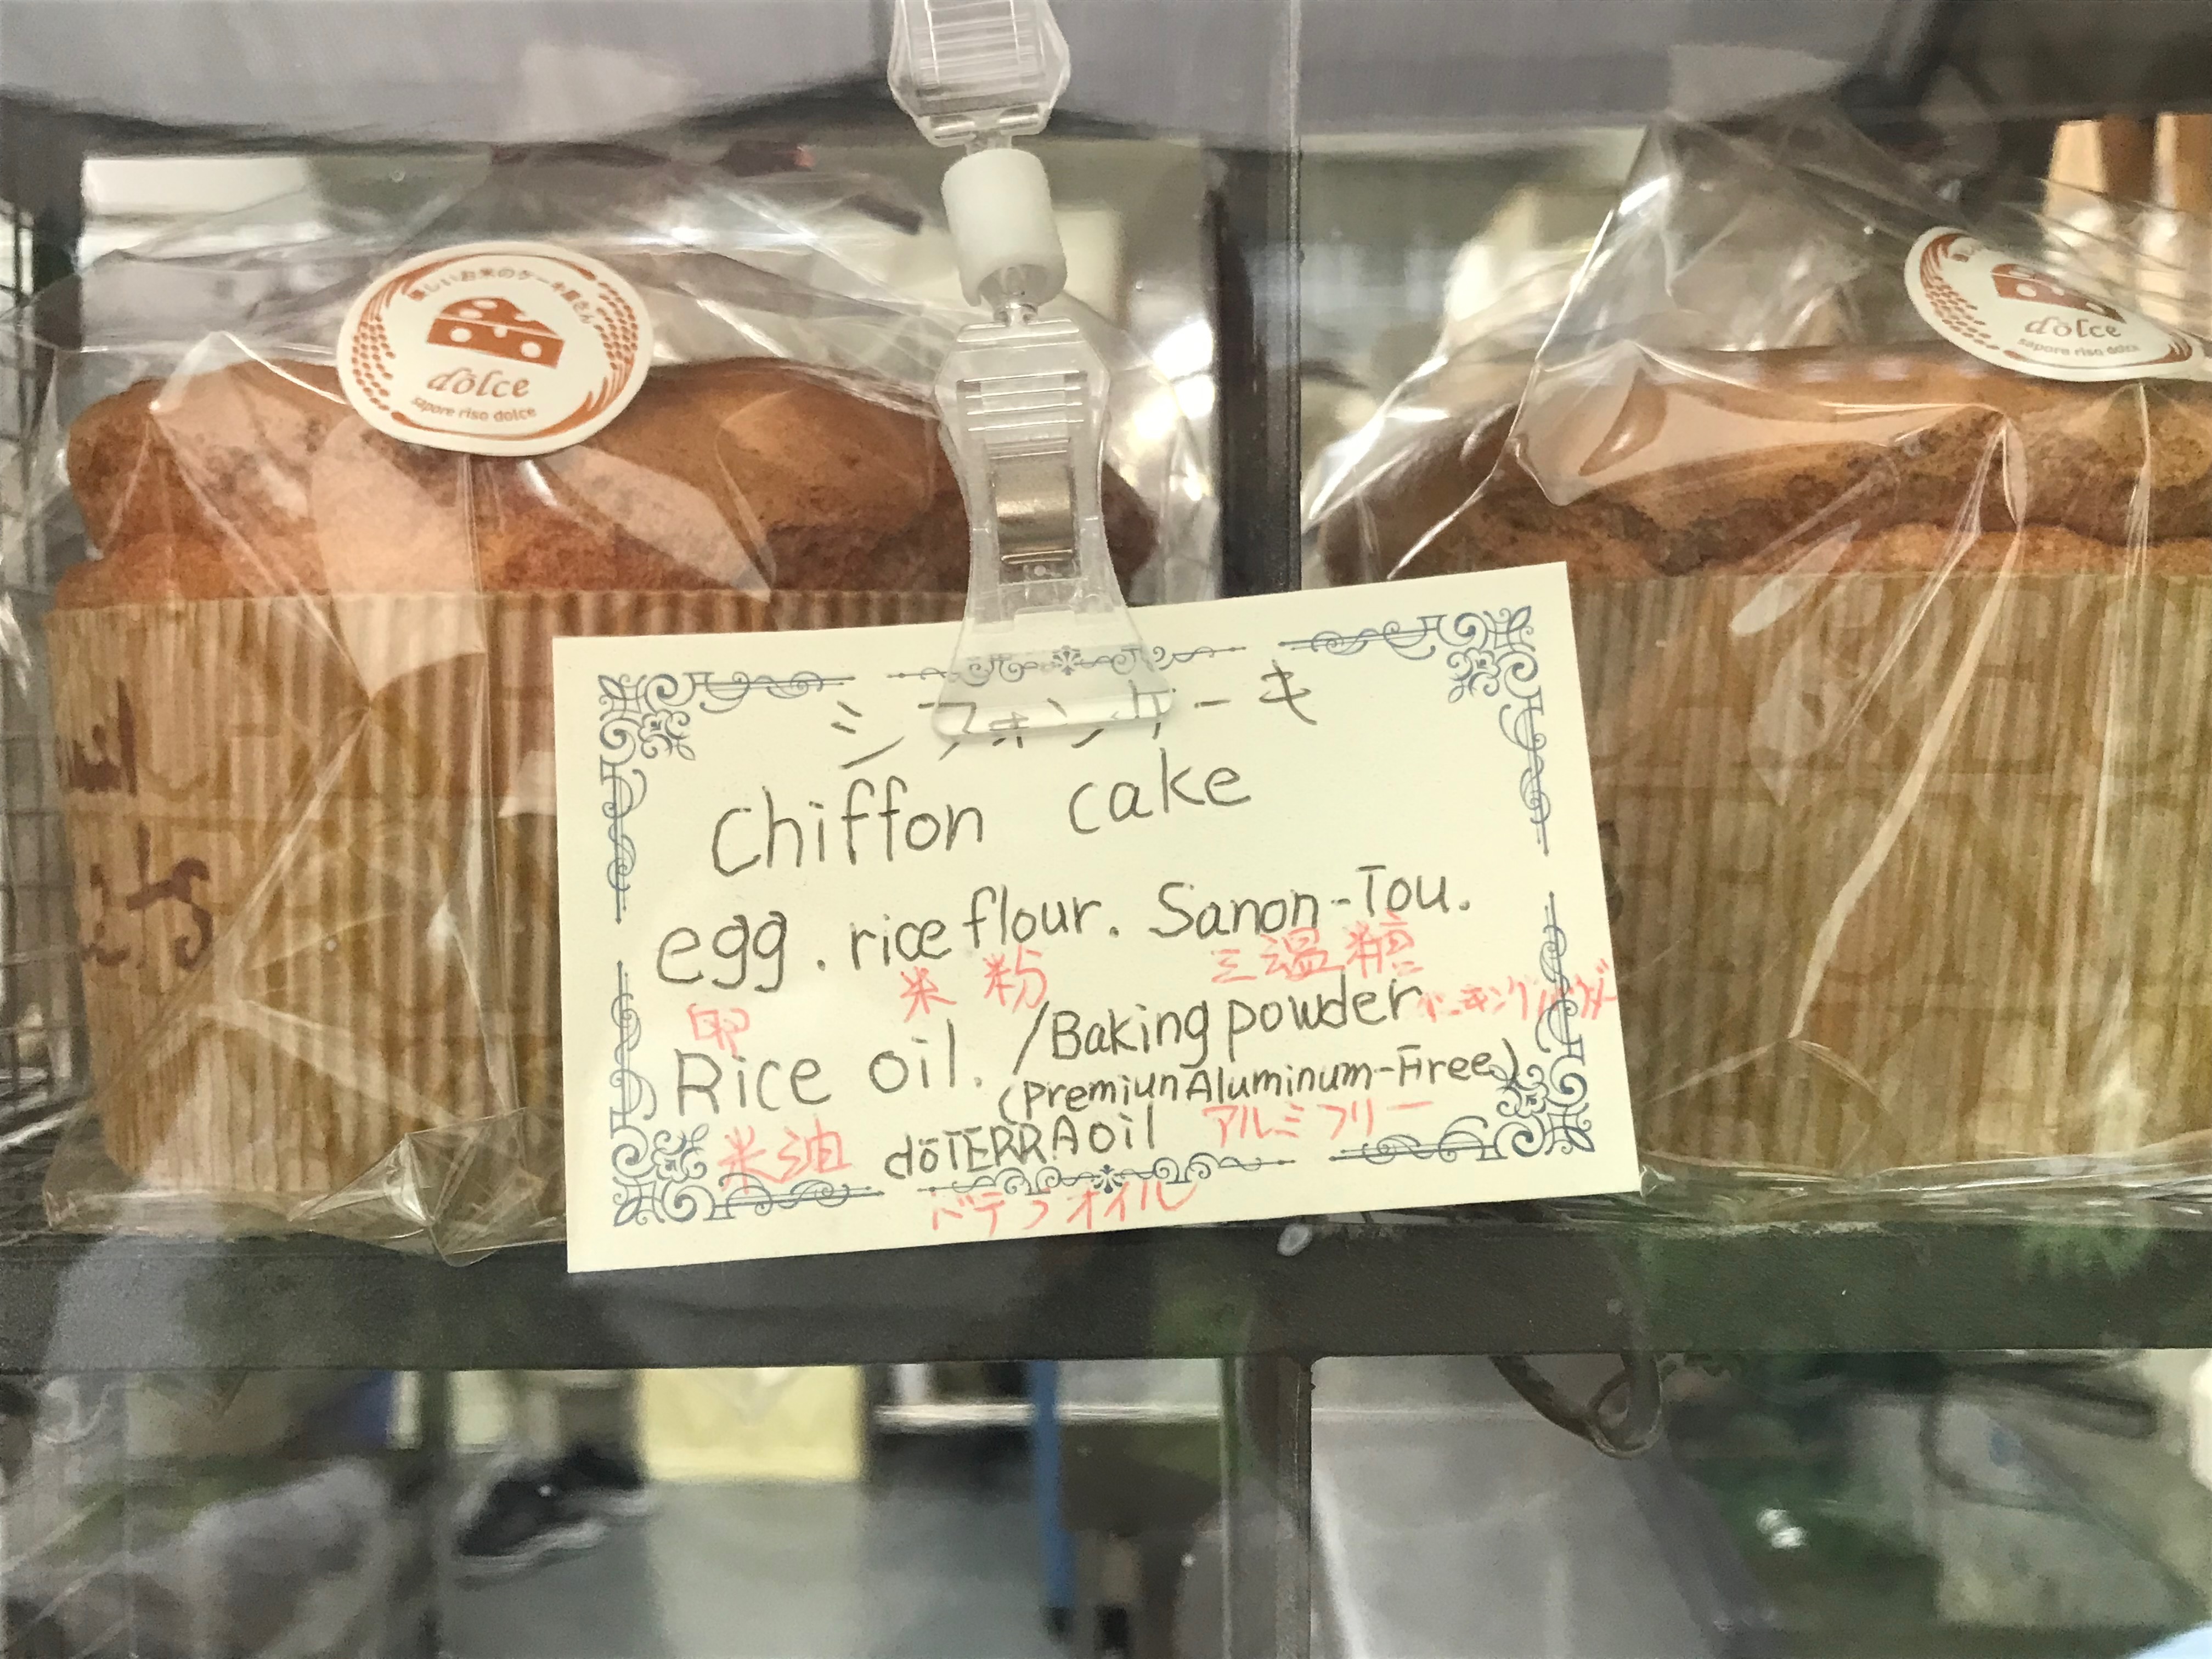 優しいお米のケーキ屋さん
dolce
sapore riso dolce
dolce
sapore riso dolce
シフォンケーキ
Chiffon cake
egg. rice flour. Sanon-Tou.
卵 米粉 三温糖
Rice oil. /Baking powder ベーキングパウダー
(PremiunAluminum-Free)
米油 dōTERRA oil アルミフリー
ドテラオイル